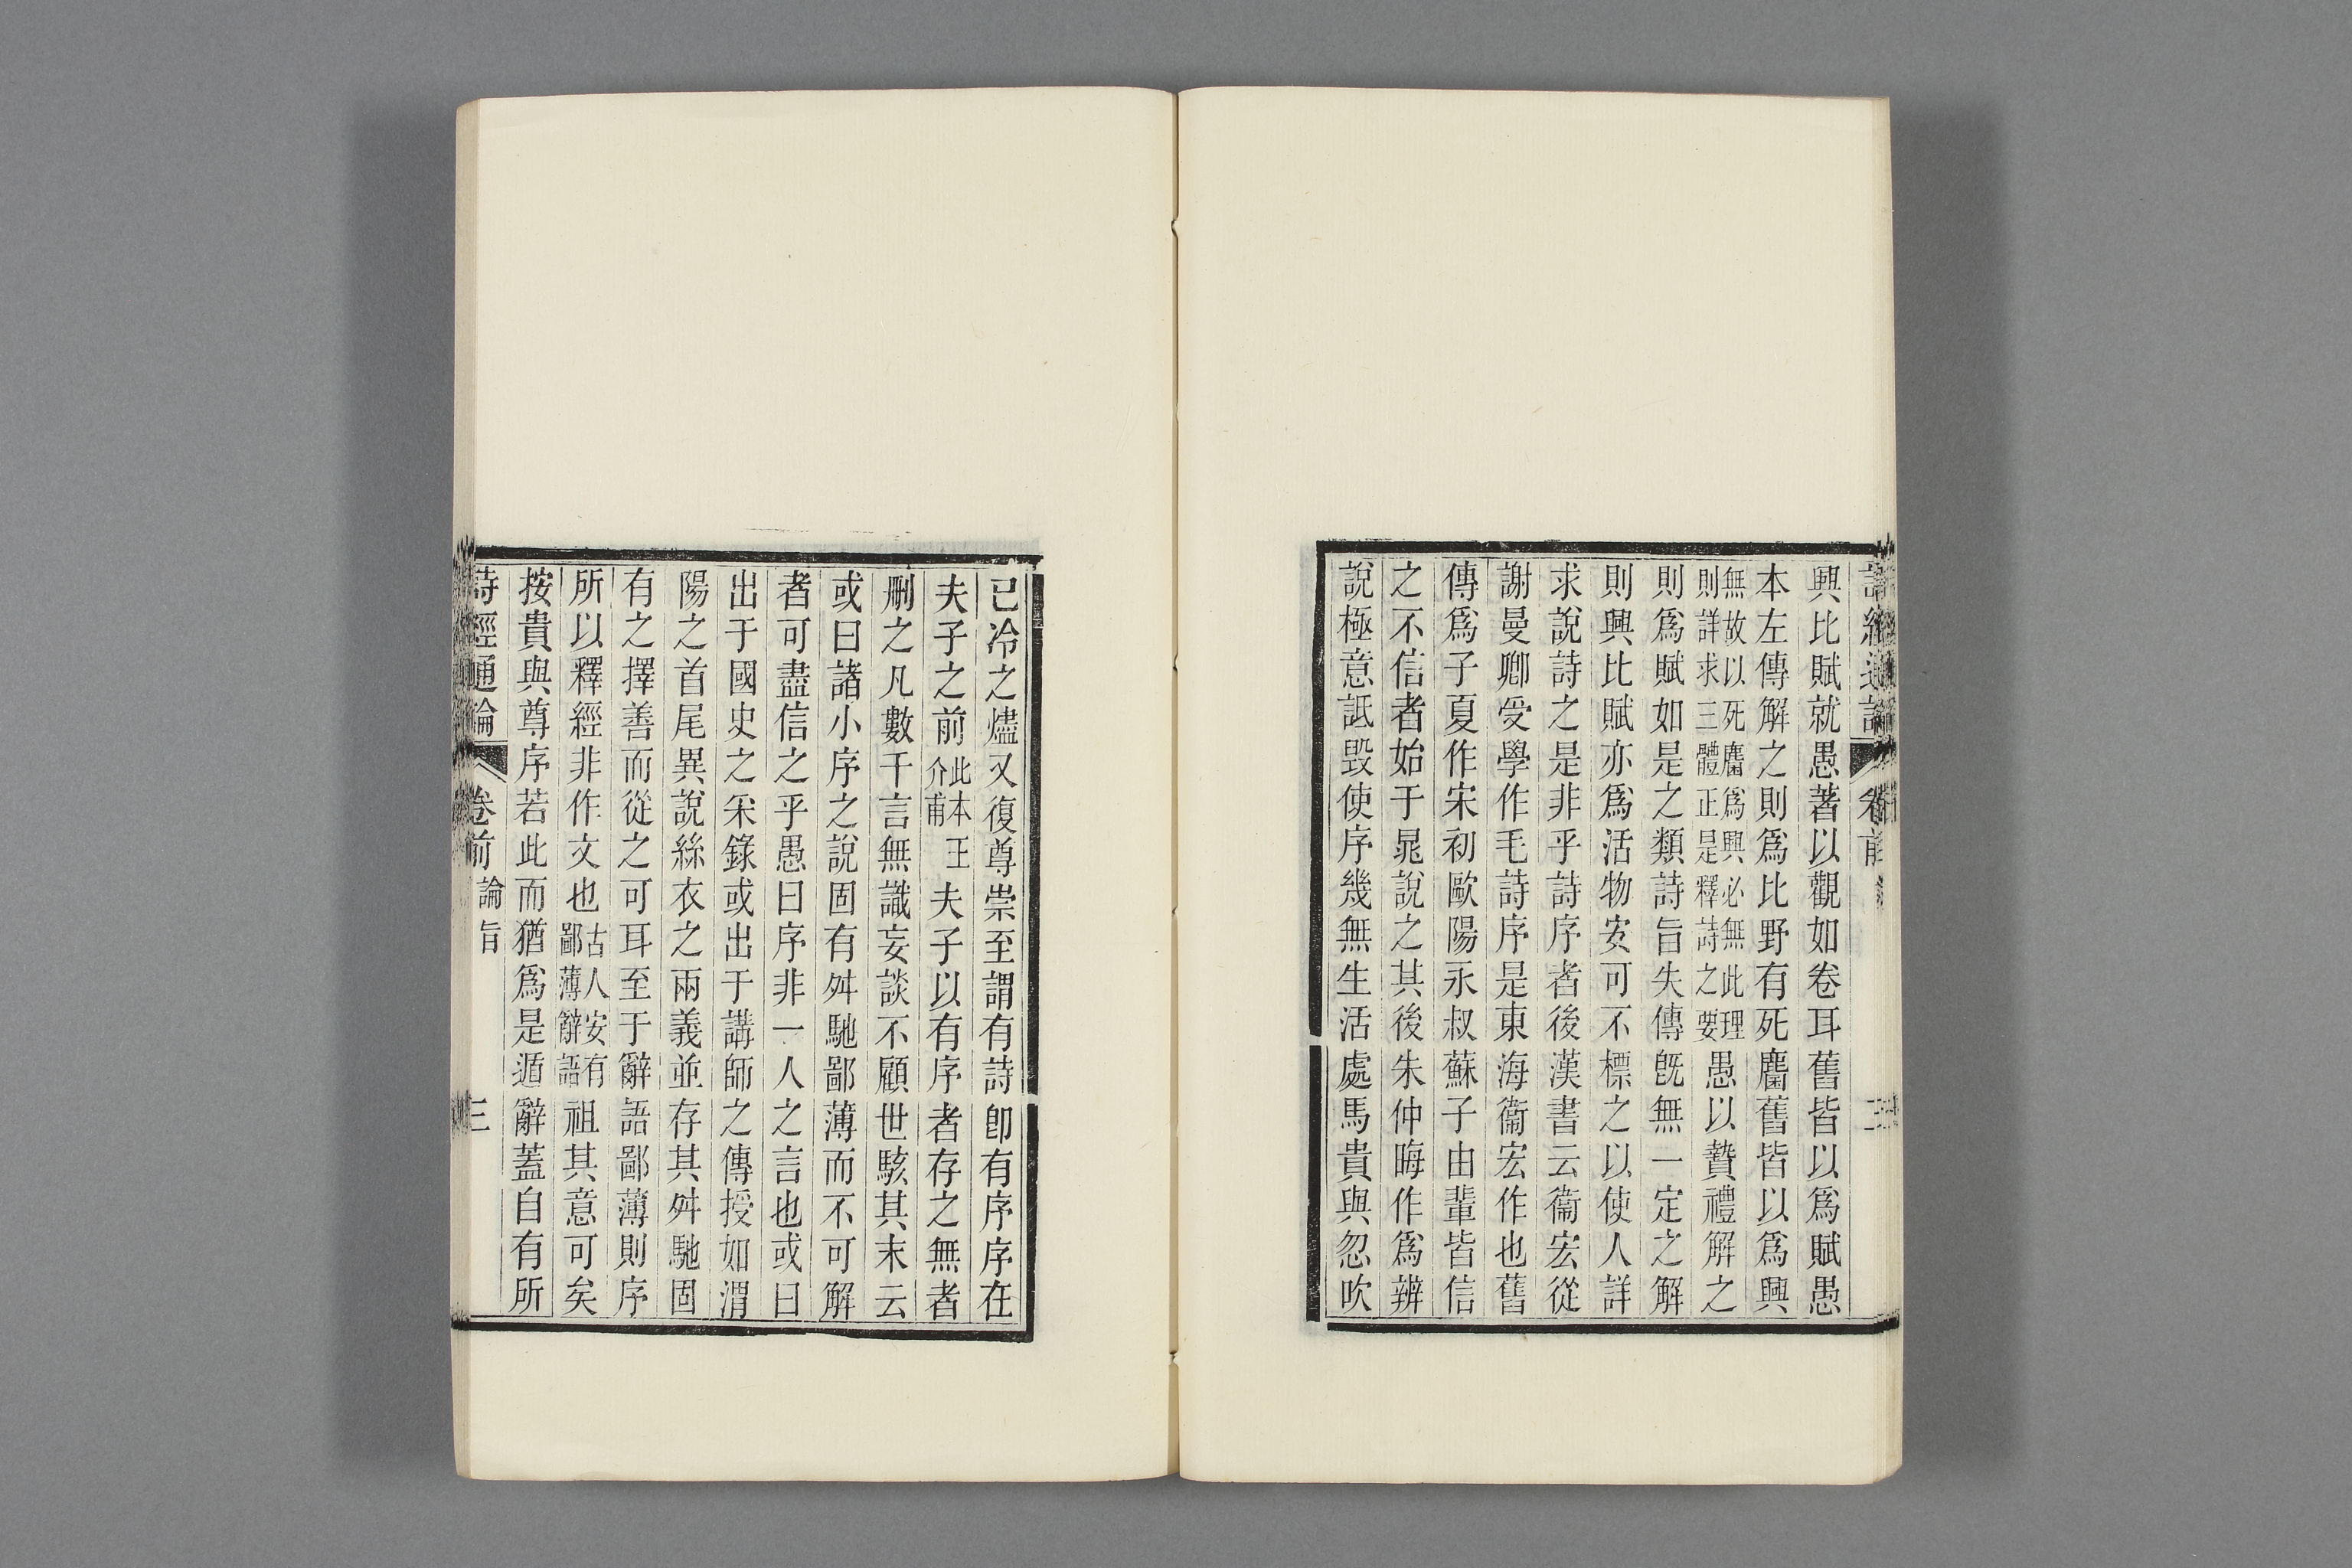 興比賦就愚著以觀如卷耳舊皆以爲賦愚
本左傳解之則爲比野有死麕舊皆以爲興
無故以死麕爲興必無此理
則詳求三體正是釋詩之要
愚以贄禮解之
則爲賦如是之類詩旨失傳旣無一定之解
則興比賦亦爲活物安可不標之以使人詳
求說詩之是非乎詩序者後漢書云衞宏從
謝曼卿受學作毛詩序是東海衞宏作也舊
傳爲子夏作宋初歐陽永叔蘇子由輩皆信
之不信者始于晁說之其後朱仲晦作爲辨
說極意詆毀使序幾無生活處馬貴與忽吹
已冷之燼又復尊崇至謂有詩卽有序序在
夫子之前
此本王
介甫
夫子以有序者存之無者
刪之凡數千言無識妄談不顧世駭其末云
或曰諸小序之說固有舛馳鄙薄而不可解
者可盡信之乎愚曰序非一人之言也或曰
出于國史之采錄或出于講師之傳授如渭
陽之首尾異說絲衣之兩義並存其舛馳固
有之擇善而從之可耳至于辭語鄙薄則序
所以釋經非作文也
古人安有
鄙薄辭語
祖其意可矣
按貴與尊序若此而猶爲是遁辭蓋自有所
詩經通論 卷前 論旨 三